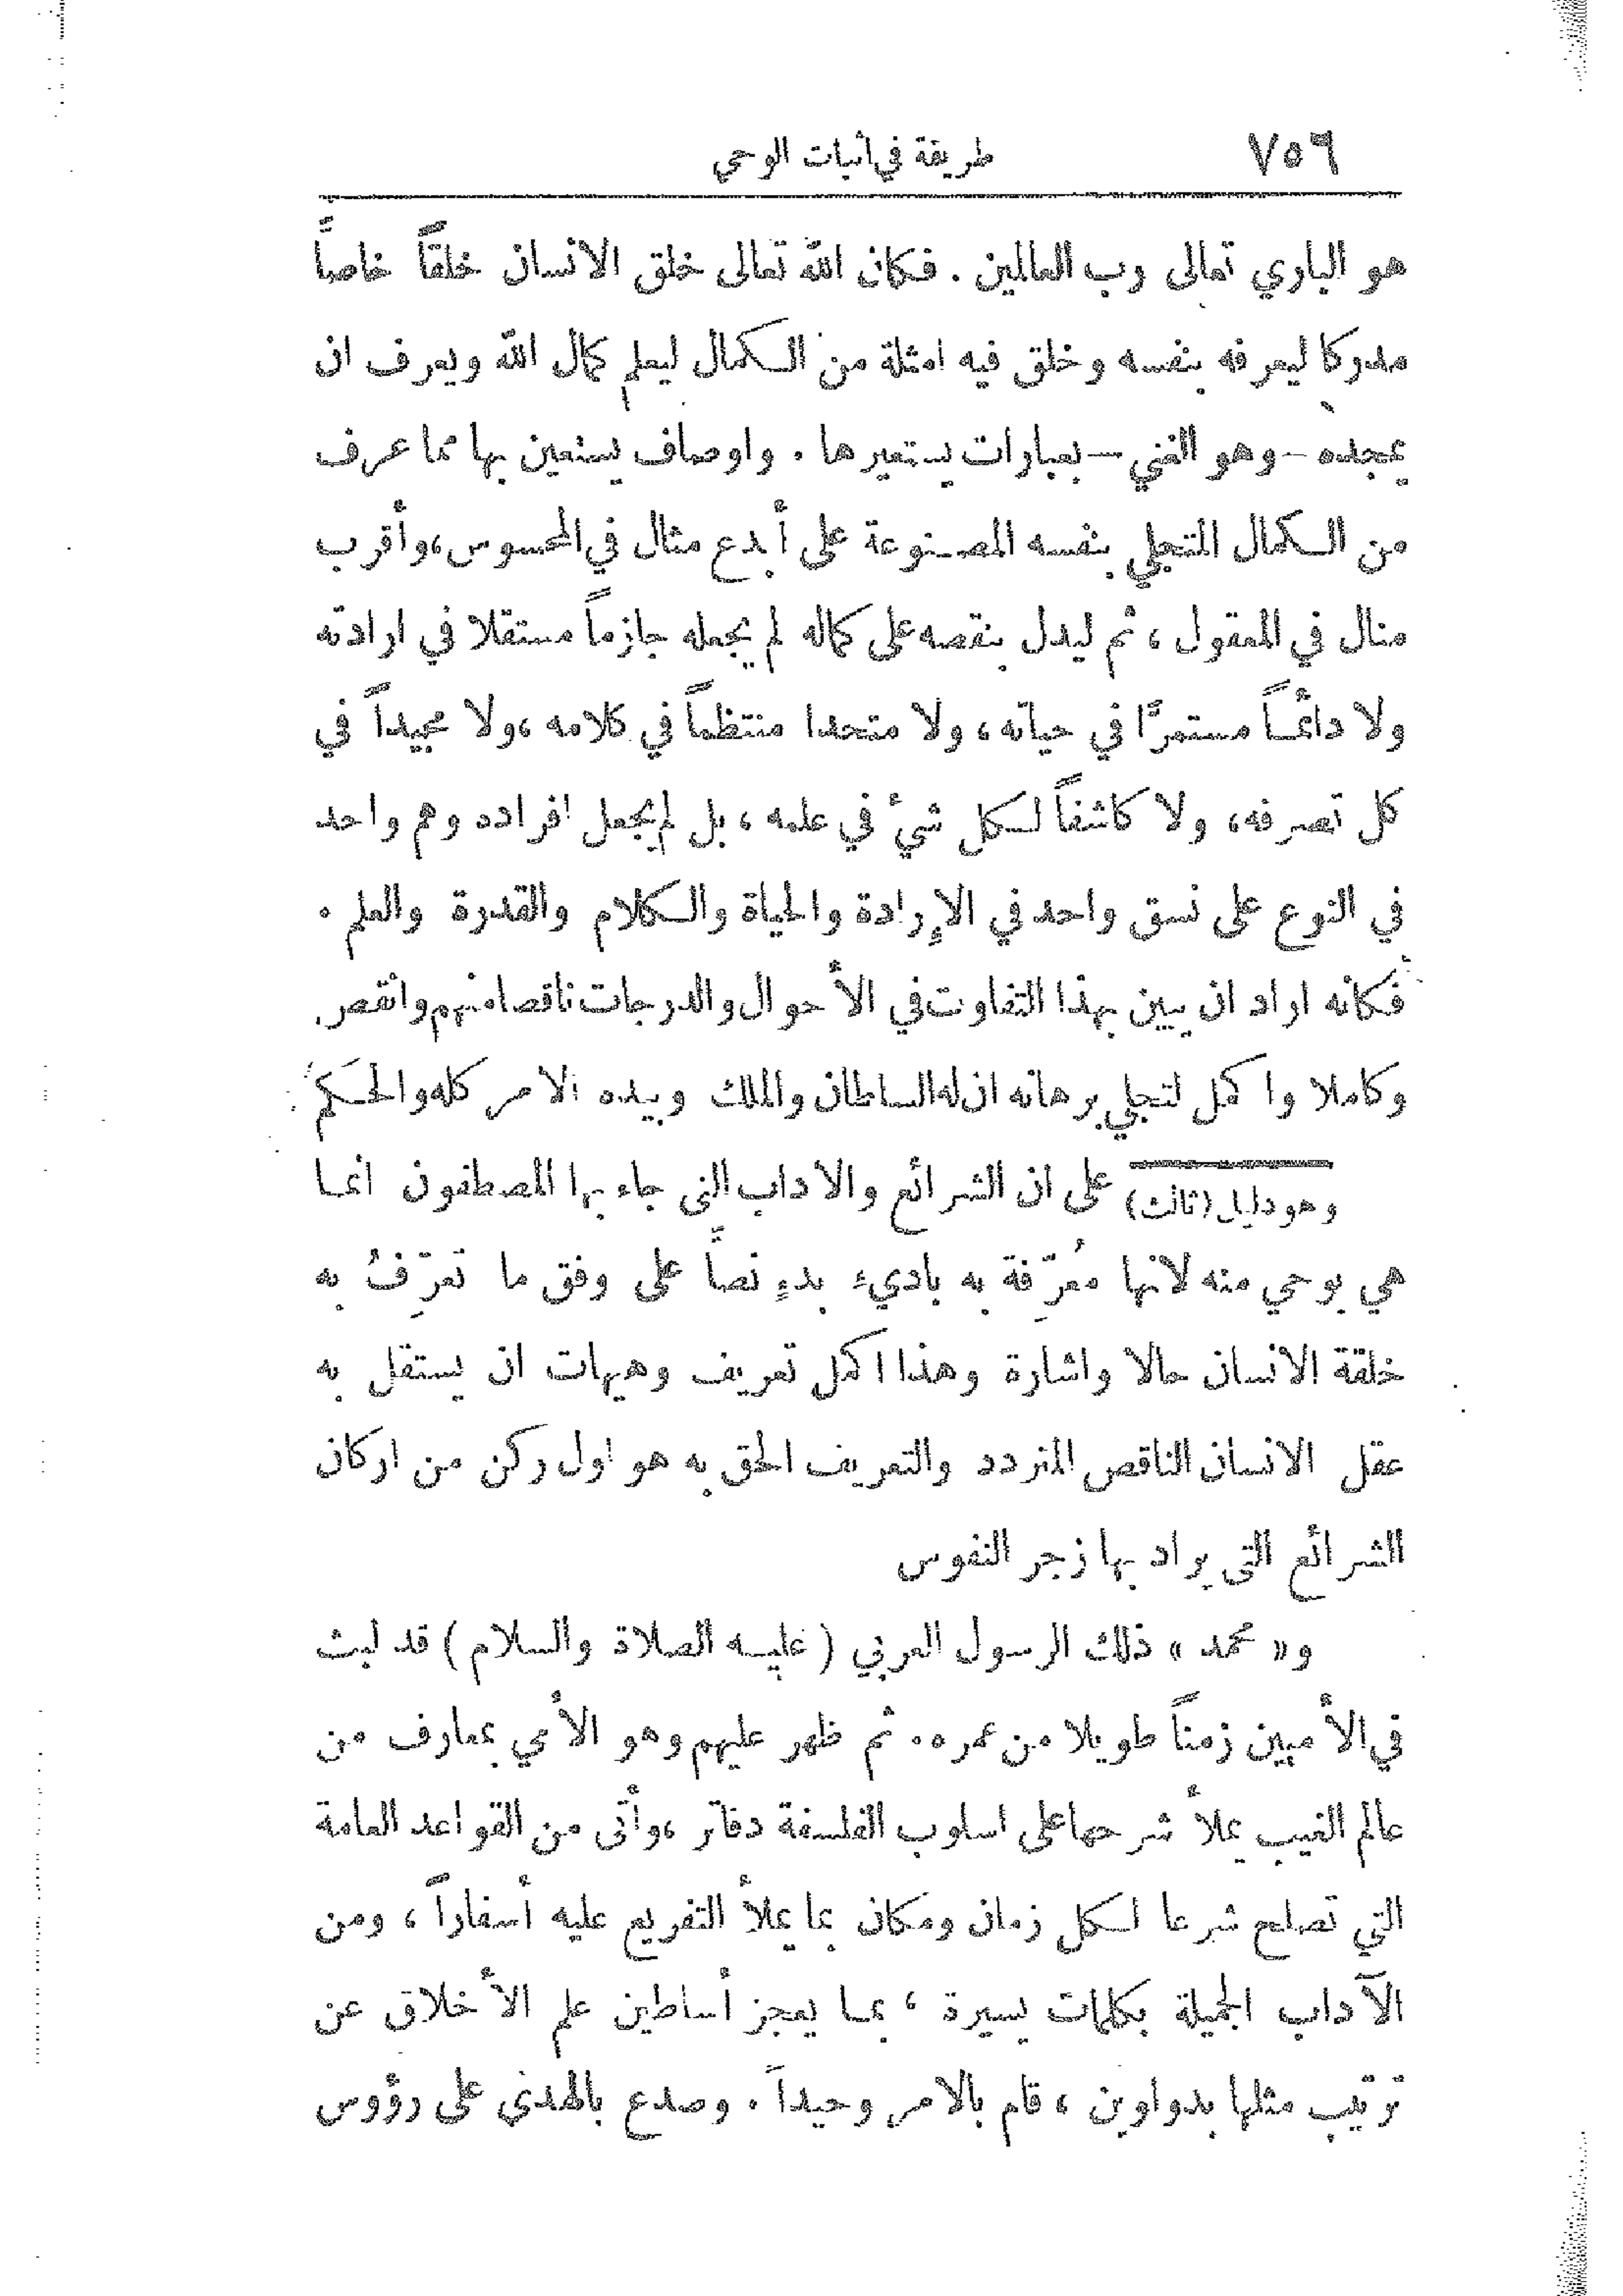 ٧٥٦ طريقة في اثبات الوحي
هو الباري تعالى رب العالمين . فكان الله تعالى خلق الانسان خلقاً خاصاً
مدركا ليعرفه بنفسه وخلق فيه امثلة من الكمال ليعلم كمال الله ويعرف ان
يمجده – وهو الغني – بعبارات يستعيرها . واوصاف يستعين بها مما عرف
من الكمال المتجلي بنفسه المصنوعة على أبدع مثال في المحسوس ، وأقرب
منال في المعقول ، ثم ليدل بنقصه على كماله لم يجعله جازماً مستقلا في ارادته
ولا دائماً مستمرًّا في حياته ، ولا متحدا منتظماً في كلامه ، ولا مجيداً في
كل تصرفه ، ولا كاشفاً لكل شيُ في علمه ، بل لم يجعل افراده وهم واحد
في النوع على نسق واحد في الإرادة والحياة والكلام والقدرة والعلم .
فكانه اراد ان يبين بهذا التفاوت في الأحوال والدرجات ناقصا منهم وانقص .
وكاملا واكمل لتجلي برهانه ان له السلطان والملك وبيده الامر كله والحَكم
وهو دليل (ثالث) على ان الشرائع والاداب التي جاء بها المصطفون انما
هي بوحي منه لانها مُعرّفة به باديء بدءٍ نصاً على وفق ما تعرّفُ به
خلقة الانسان حالا واشارة وهذا اكمل تعريف وهيهات ان يستقل به
عقل الانسان الناقص المتردد والتعريف الحق به هو اول ركن من اركان
الشرائع التي يراد بها زجر النفوس
و« محمد » ذلك الرسول العربي ( عليه الصلاة والسلام ) قد لبث
في الأميين زمناً طويلا من عمره . ثم ظهر عليهم وهو الأمي بمعارف من
عالم الغيب يملأ شرحها على اسلوب الفلسفة دفاتر ، وأتى من القواعد العامة
التي تصلح شرعا لكل زمان ومكان بما يملأ التفريع عليه أسفاراً ، ومن
الآداب الجميلة بكلمات يسيرة ، بما يعجز أساطين علم الأخلاق عن
ترتيب مثلها بدواوين ، قام بالامر وحيداً . وصدع بالهدى على رؤوس